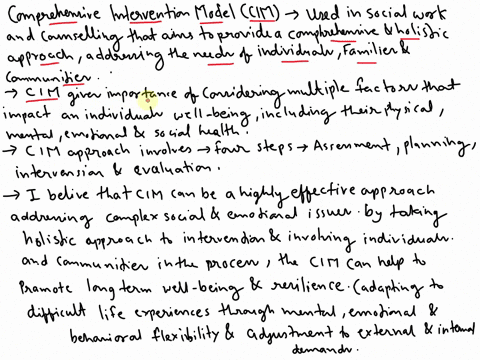 Comprehensive Intervention Model (CIM) → Used in social work
and counselling that aims to provide a comprehensive & holistic
approach, addressing the needs of individuals, Families &
Communities.
→ CIM gives importance of considering multiple factors that
impact an individuals well-being, including their physical,
mental, emotional & social health.
→ CIM approach involves → four steps → Assessment, planning,
intervension & evaluation.
→ I belive that CIM can be a highly effective approach
addressing complex social & emotional issues. by taking
holistic approach to intervention & involving individuals.
and communities in the process, the CIM can help to
Promote long term well-being & resilience. (adapting to
difficult life experiences through mental, emotional &
behavioral flexibility & adjustment to external & internal
demands.